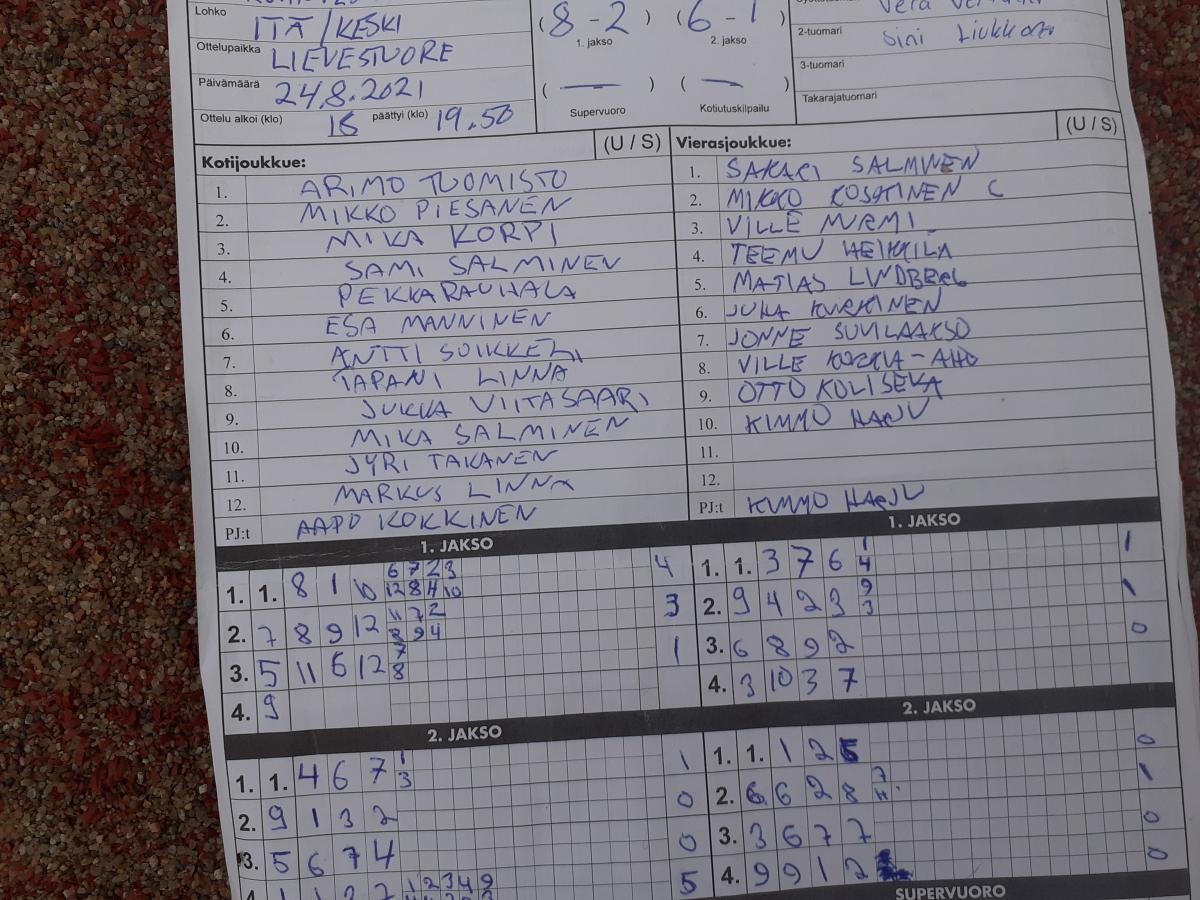 Lohko ITÄ/KESKI
Ottelupaikka LIEVESTUORE
Päivämäärä 24.8.2021
Ottelu alkoi (klo) 18 päättyi (klo) 19.50
(8-2) (6-1)
1. jakso 2. jakso
(—) (—)
Supervuoro Kotiutuskilpailu
Vera
2-tuomari Sini Liukkonen
3-tuomari
Takarajatuomari
Kotijoukkue: (U / S)
1. ARIMO TUOMISTO
2. MIKKO PIESANEN
3. MIKA KORPI
4. SAMI SALMINEN
5. PEKKA RAUHALA
6. ESA MANNINEN
7. ANTTI SOIKKELI
8. TAPANI LINNA
9. JUKKA VIITASAARI
10. MIKA SALMINEN
11. JYRI TAKANEN
12. MARKUS LINNA
PJ:t AAPO KOKKINEN
Vierasjoukkue: (U / S)
1. SAKARI SALMINEN
2. MIKKO KOSKINEN C
3. VILLE NURMI
4. TEEMU HEIKKILA
5. MATIAS LINDBERG
6. JUHA KURKINEN
7. JONNE SUVILAAKSO
8. VILLE
9. OTTO KOLISEVA
10. KIMMO HARJU
11.
12.
PJ:t KIMMO HARJU
1. JAKSO
1. 1. 8 1 10 6 7 2 3 4
12 8 4 10
2. 7 8 9 12 11 7 2 3
8 9 4
3. 5 11 6 12 7 1
8
4. 9
1. JAKSO
1. 1. 3 7 6 1 1
4
2. 9 4 2 3 9 1
3
3. 6 8 9 2 0
4. 3 10 3 7
2. JAKSO
1. 1. 4 6 7 1 1
3
2. 9 1 3 2 0
3. 5 6 7 4 0
4. 1 1 2 7 1 2 3 4 9 5
2. JAKSO
1. 1. 1 2 5 0
2. 6 6 2 8 7 1
3. 3 6 7 7 0
4. 9 9 1 2 0
SUPERVUORO